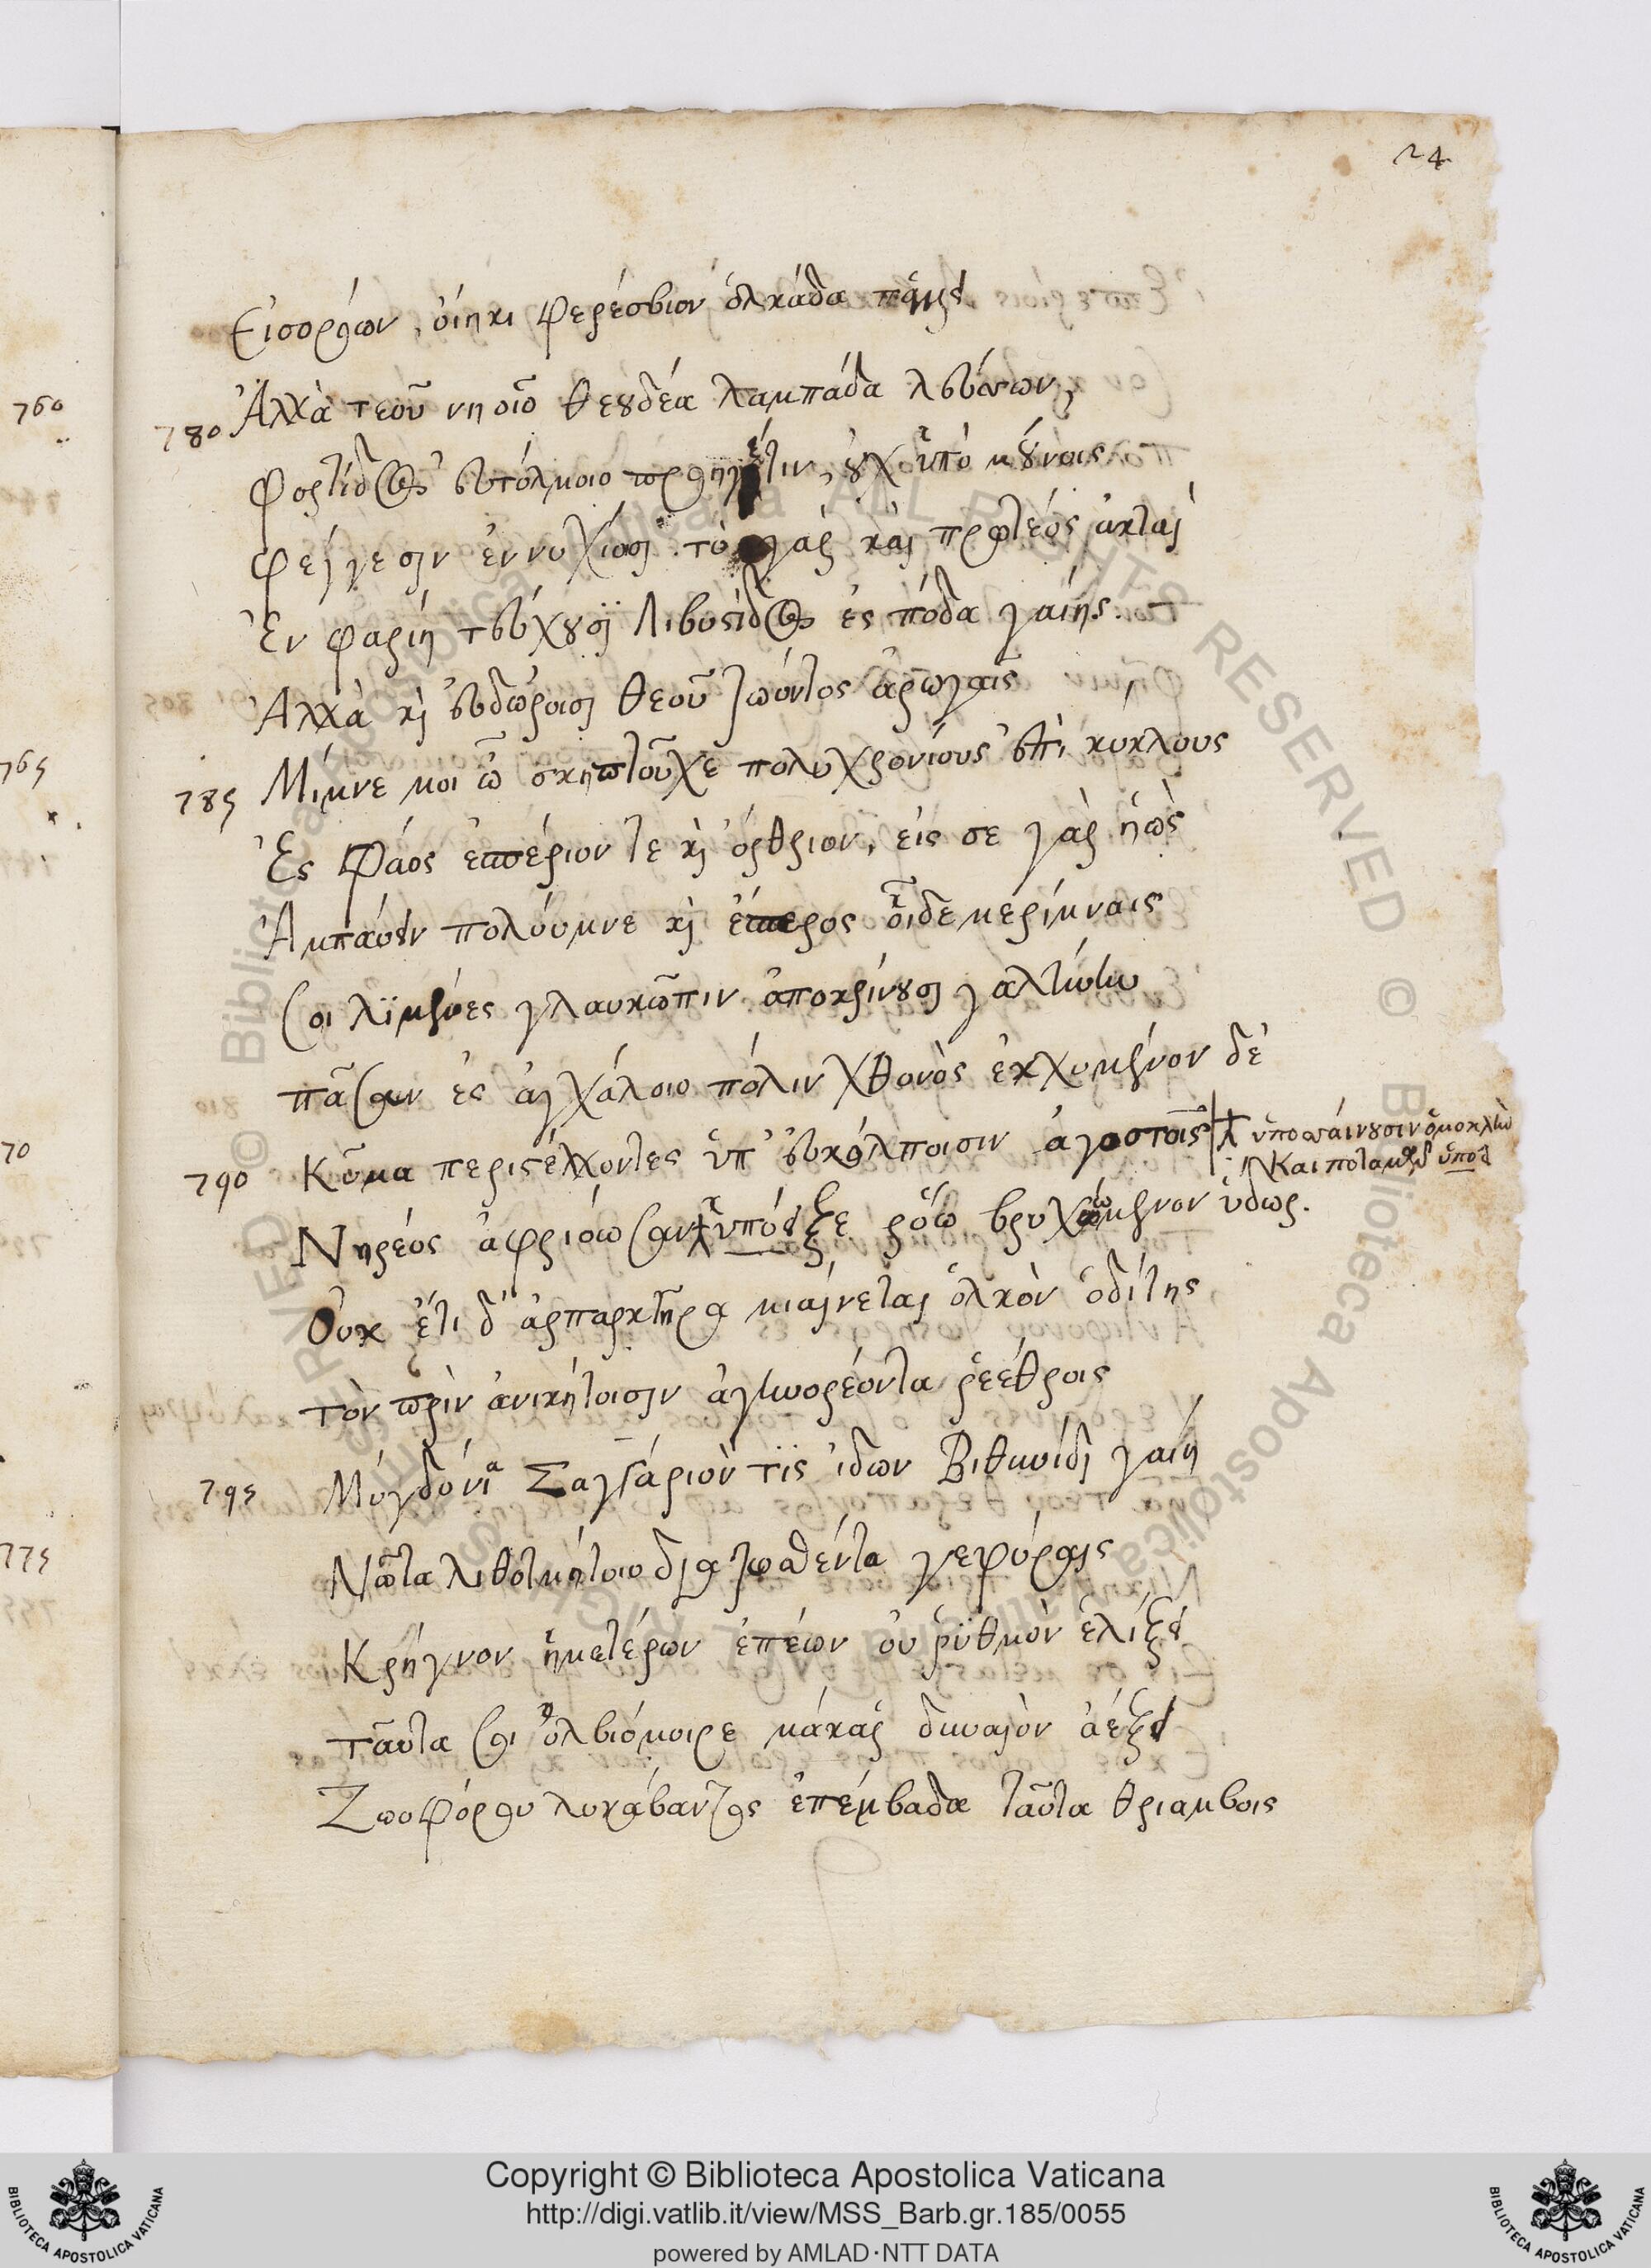 24
Εἰσορόων, οἴηκι φερέσβιον ὁλκάδα πέμπει
760
780 Ἀλλὰ τεοῦ νηοῖο θεουδέα λαμπάδα λεύσσων,
Φορτίδος εὐτόλμοιο πορθητιν, οὐχ ὑπὸ μούναις
Φέγγεσιν ἐννυχίοισι τὸ γὰρ καὶ πρωτέος ἀκταὶ
Ἐν φαρίη τεύχουσι Λιβυστίδος ἐς πόδα γαίης.
Ἀλλὰ κὴ εὐδώροισι θεοῦ ζώοντος ἀρωγαῖς
765
785 Μίμνε μοι ὦ σκηπτοῦχε πολυχρονίους ἐπὶ κύκλους
Ἐς φάος ἑσπέριον τε κὴ ὄρθριον, εἰς σε γὰρ ἠὼς
Ἀμπαύειν πολύυμνε κὴ ἕσπερος οἶδε μερίμναις
Σοι λϊμένες γλαυκῶπιν ἀποκρίνουσι γαλήνην
πᾶσαν ἐς ἀγχιάλοιο πόλιν χθονὸς ἐκχυμένον δὲ
70
790 Κῦμα περιστέλλοντες ὑπ' εὐκόλποισιν ἀγοστοῖς
ὑποσαίνουσιν ὁμοκλὴν
Και ποταμὸς ὑπος
Νηρέος ἀφριόωσαν ὑπόειξε ῥόω βρυχώμενον ὕδωρ.
Οὐκ ἔτι δ' ἁρπακτῆρα μιαίνεται ὁλκὸν ὁδίτης
τὸν πρὶν ἀνικήτοισιν ἀγηνορέοντα ῥεέθροις
795 Μύγδονια Σαγγάριον τϊς ἰδων Βιθυνίδι γαίη
775
Νῶτα λιθοτμήτοιο διαζωσθέντα γεφύραις
Κρήγυον ἡμετέρων ἐπέων οὐ ῥυθμὸν ἑλίξει
ταῦτα σοι ὀλβιόμοιρε μάκαρ δηναιὸν ἀέξει
Ζωοφόρου λυκάβαντος ἐπέμβαδα ταῦτα θριαμβοις
Copyright © Biblioteca Apostolica Vaticana
http://digi.vatlib.it/view/MSS_Barb.gr.185/0055
powered by AMLAD·NTT DATA